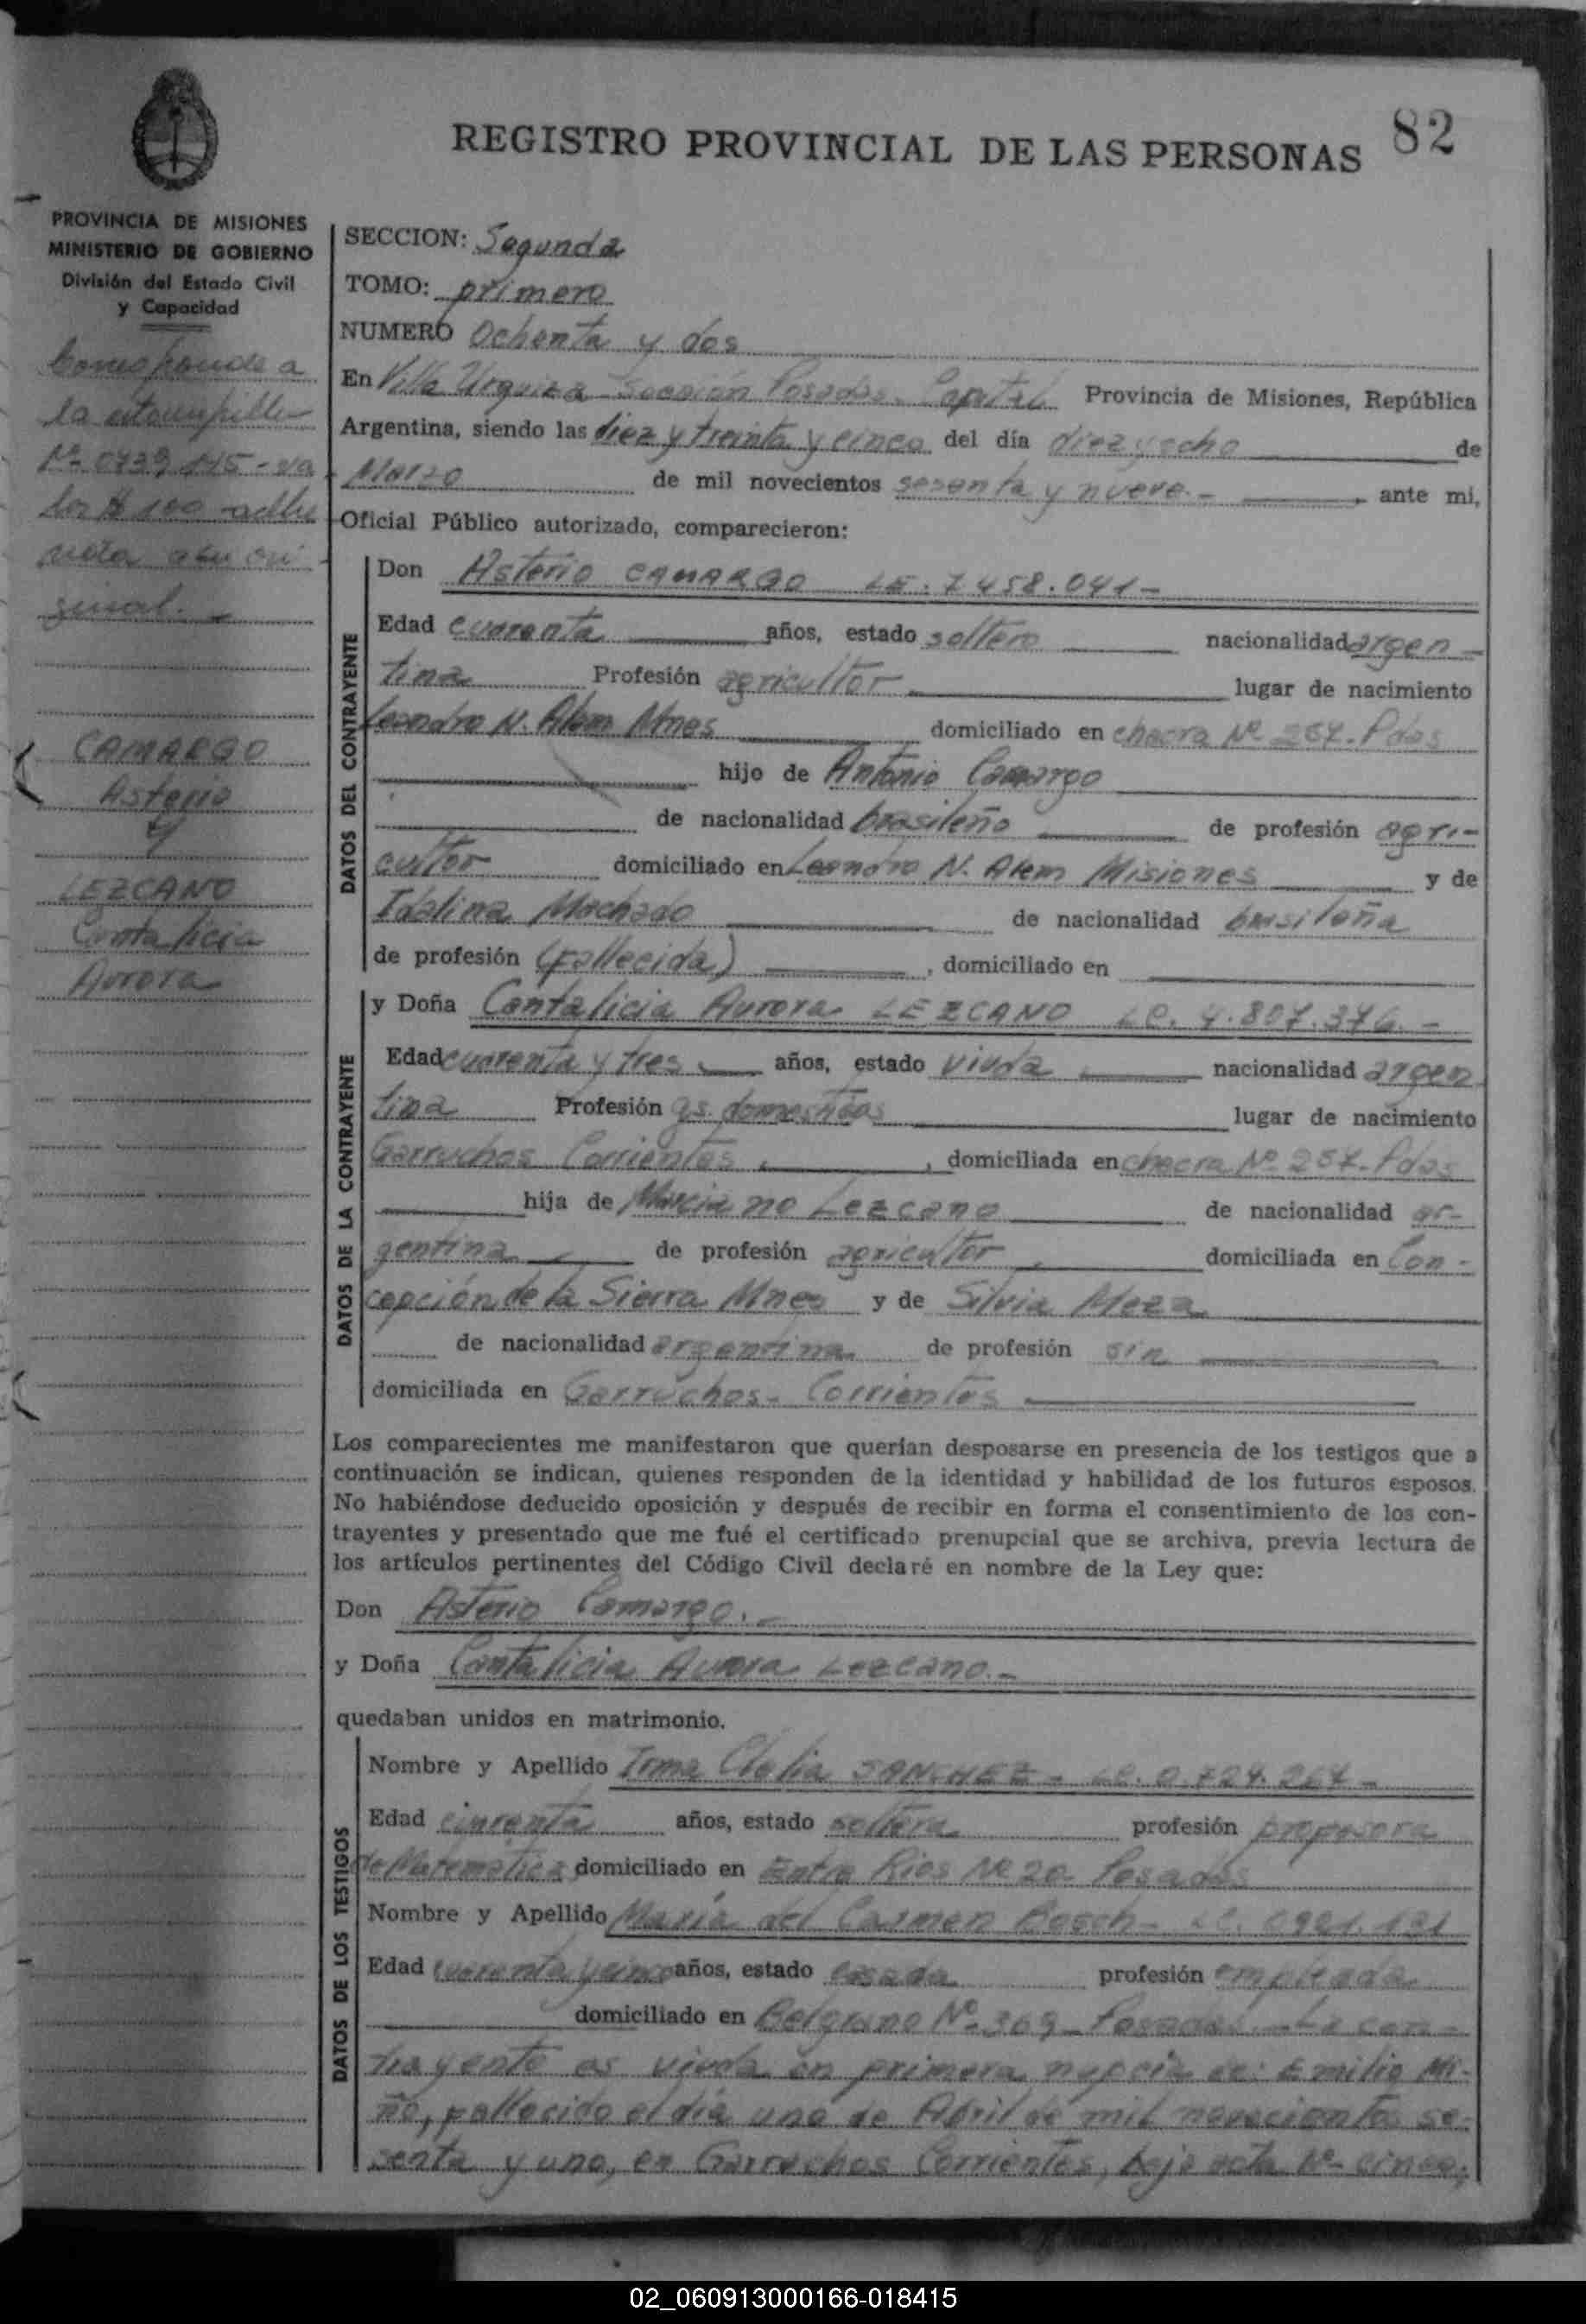 82
REGISTRO PROVINCIAL DE LAS PERSONAS
PROVINCIA DE MISIONES
MINISTERIO DE GOBIERNO
División del Estado Civil
y Capacidad
Corresponde a
la estampilla
Nº 0739 - va
lor $ 100 - adhe
rida a su ori
ginal. -
CAMARGO
Asterio
y
LEZCANO
Cantalicia
Aurora
SECCION: Segunda
TOMO: primero
NUMERO Ochenta y dos
En Villa Urquiza Sección Posadas - Capital Provincia de Misiones, República
Argentina, siendo las diez y treinta y cinco del día diez y ocho de
Marzo de mil novecientos sesenta y nueve. - , ante mi,
Oficial Público autorizado, comparecieron:
DATOS DEL CONTRAYENTE
Don Asterio CAMARGO LE. 7.458.041 -
Edad cuarenta años, estado soltero nacionalidad argen -
tina Profesión agricultor lugar de nacimiento
Leandro N. Alem Mnes domiciliado en chacra Nº 257 - Pdas
hijo de Antonio Camargo
de nacionalidad brasileño de profesión agri-
cultor domiciliado en Leandro N. Alem Misiones y de
Idalina Machado de nacionalidad brasileña
de profesión (fallecida) , domiciliado en
DATOS DE LA CONTRAYENTE
y Doña Cantalicia Aurora LEZCANO LC. 4.807.376. -
Edad cuarenta y tres años, estado viuda nacionalidad argen
tina Profesión qs. domesticos lugar de nacimiento
Garruchos Corrientes , domiciliada en chacra Nº 257 - Pdas
hija de Marciano Lezcano de nacionalidad ar-
gentina de profesión agricultor domiciliada en Con -
cepción de la Sierra Mnes y de Silvia Meza
de nacionalidad argentina de profesión sin
domiciliada en Garruchos - Corrientes
Los comparecientes me manifestaron que querían desposarse en presencia de los testigos que a
continuación se indican, quienes responden de la identidad y habilidad de los futuros esposos.
No habiéndose deducido oposición y después de recibir en forma el consentimiento de los con-
trayentes y presentado que me fué el certificado prenupcial que se archiva, previa lectura de
los artículos pertinentes del Código Civil declaré en nombre de la Ley que:
Don Asterio Camargo. -
y Doña Cantalicia Aurora Lezcano. -
quedaban unidos en matrimonio.
DATOS DE LOS TESTIGOS
Nombre y Apellido Irma Clelia SANCHEZ - LC. 0.724.267 -
Edad años, estado soltera profesión profesora
de Matematica domiciliado en Entre Rios Nº 20 - Posadas
Nombre y Apellido María del Carmen Bosch - LC.
Edad cuarenta y cinco años, estado casada profesión empleada
domiciliado en Belgrano Nº 369 - Posadas. - La con -
trayente es viuda en primera nupcia de: Emilio Mi-
ño, fallecido el día uno de Abril de mil novecientos se-
senta y uno, en Garruchos Corrientes, bajo acta Nº cinco;
02_060913000166-018415